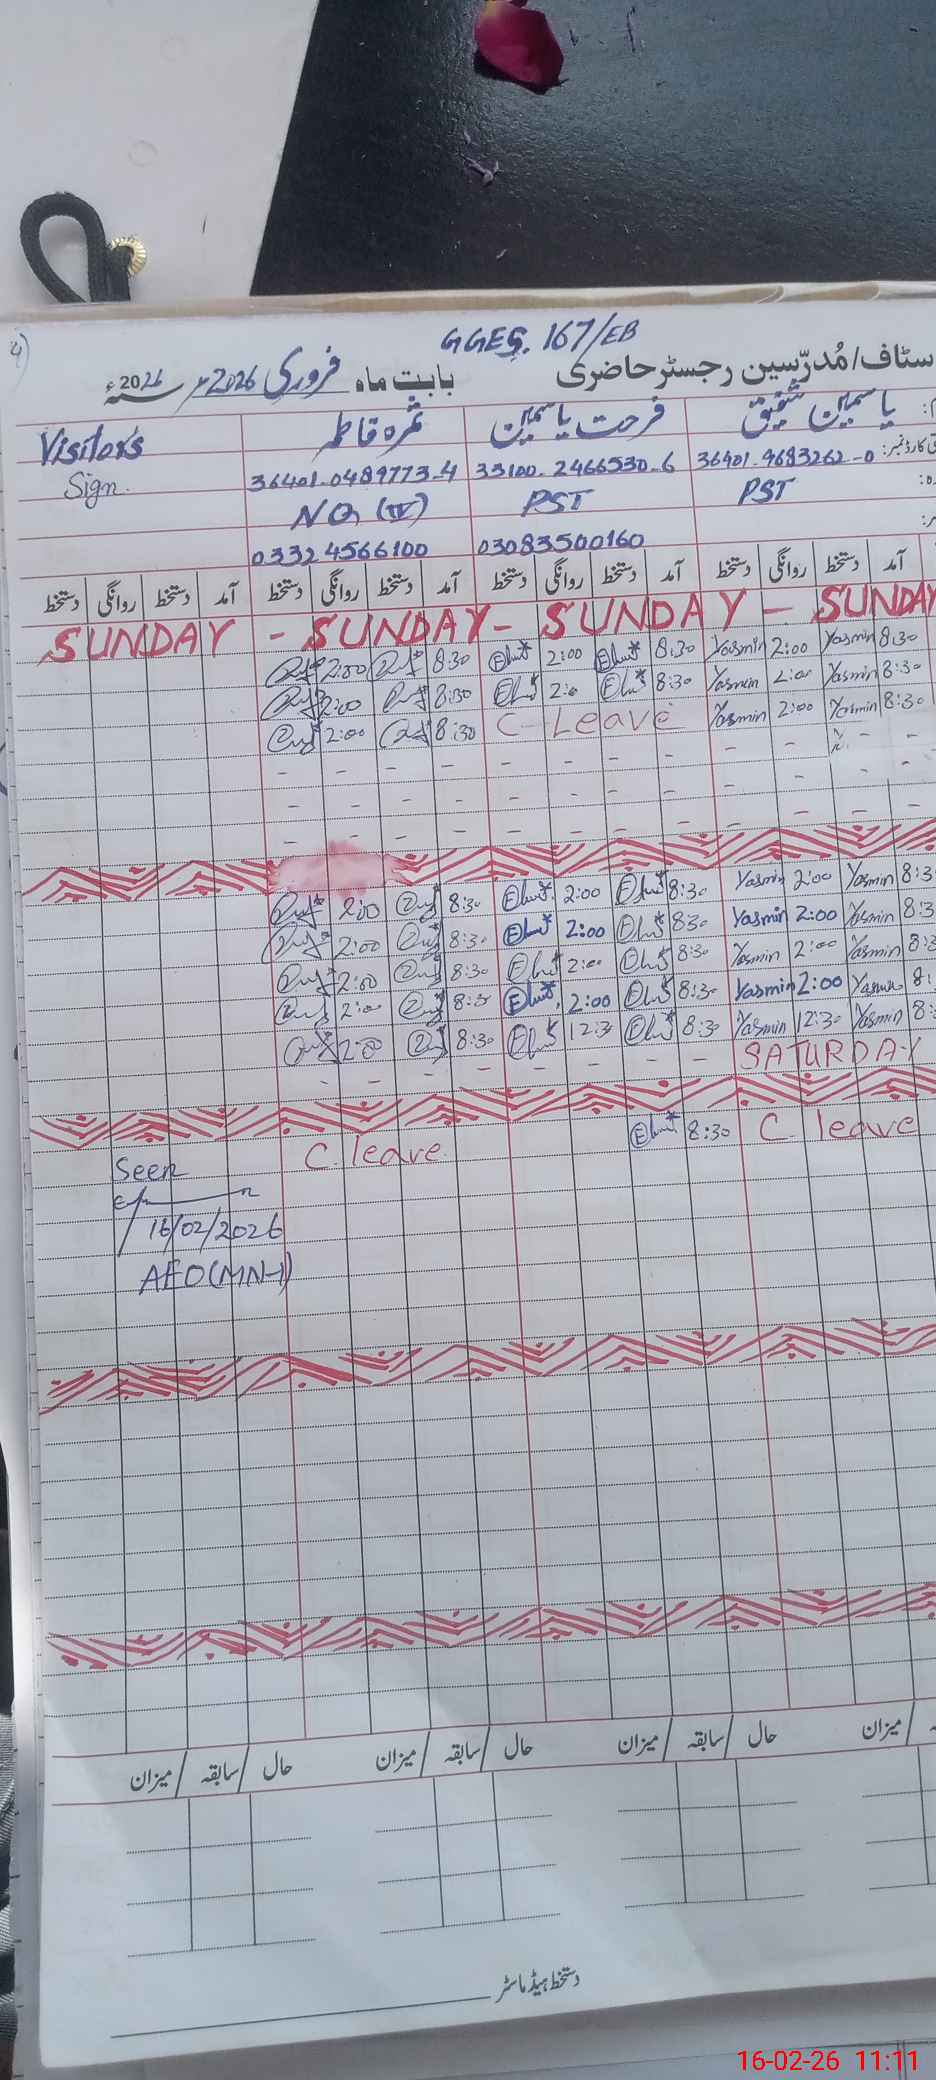 4)
GGES. 167/EB
سٹاف/مُدرّسین رجسٹر حاضری بابت ماہ فروری 2026 سنہ 2026ء
یاسمین شفیق فرحت یاسمین ثمرہ فاطمہ Visitors
36401-9683262-0 33100-2466530-6 36401-0489773-4 Sign.
PST PST NQ (IV)
03083500160 03324566100
آمد دستخط روانگی دستخط آمد دستخط روانگی دستخط آمد دستخط روانگی دستخط آمد دستخط روانگی دستخط
SUNDAY - SUNDAY - SUNDAY - SUNDAY
2:00 8:30 2:00 8:30 Yasmin 2:00 Yasmin 8:30
2:00 8:30 2:0 8:30 Yasmin 2:00 Yasmin 8:30
2:00 8:30 C-Leave Yasmin 2:00 Yasmin 8:30
2:00 8:30 2:00 8:30 Yasmin 2:00 Yasmin 8:3
2:00 8:30 2:00 8:30 Yasmin 2:00 Yasmin 8:3
2:00 8:30 2:00 8:30 Yasmin 2:00 Yasmin 8:3
2:00 8:30 2:00 8:30 Yasmin 2:00 Yasmin 8:
2:00 8:30 12:3 8:30 Yasmin 12:30 Yasmin 8:
SATURDAY
8:30 C. leave
C. leave
Seen
16/02/2026
AEO(MN-1)
حال / سابقہ / میزان حال / سابقہ / میزان حال / سابقہ / میزان میزان /
دستخط ہیڈ ماسٹر
16-02-26 11:11